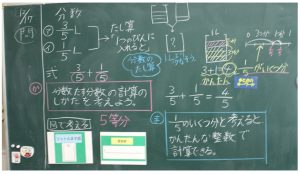 12/7
分数
問
㋐ 3/5 L
㋑ 1/5 L
たし算
1つのびんに
入れると
[ ? ]
分数の
たし算
式 3/5 + 1/5
か
分数たす分数の計算の
しかたを考えよう。
図で考える
5等分
1L
3+1
かんたん
1/5がいくつ分
3/5 + 1/5 = 4/5
ま
1/5がいくつ分と考えると
かんたんな整数で
計算できる。